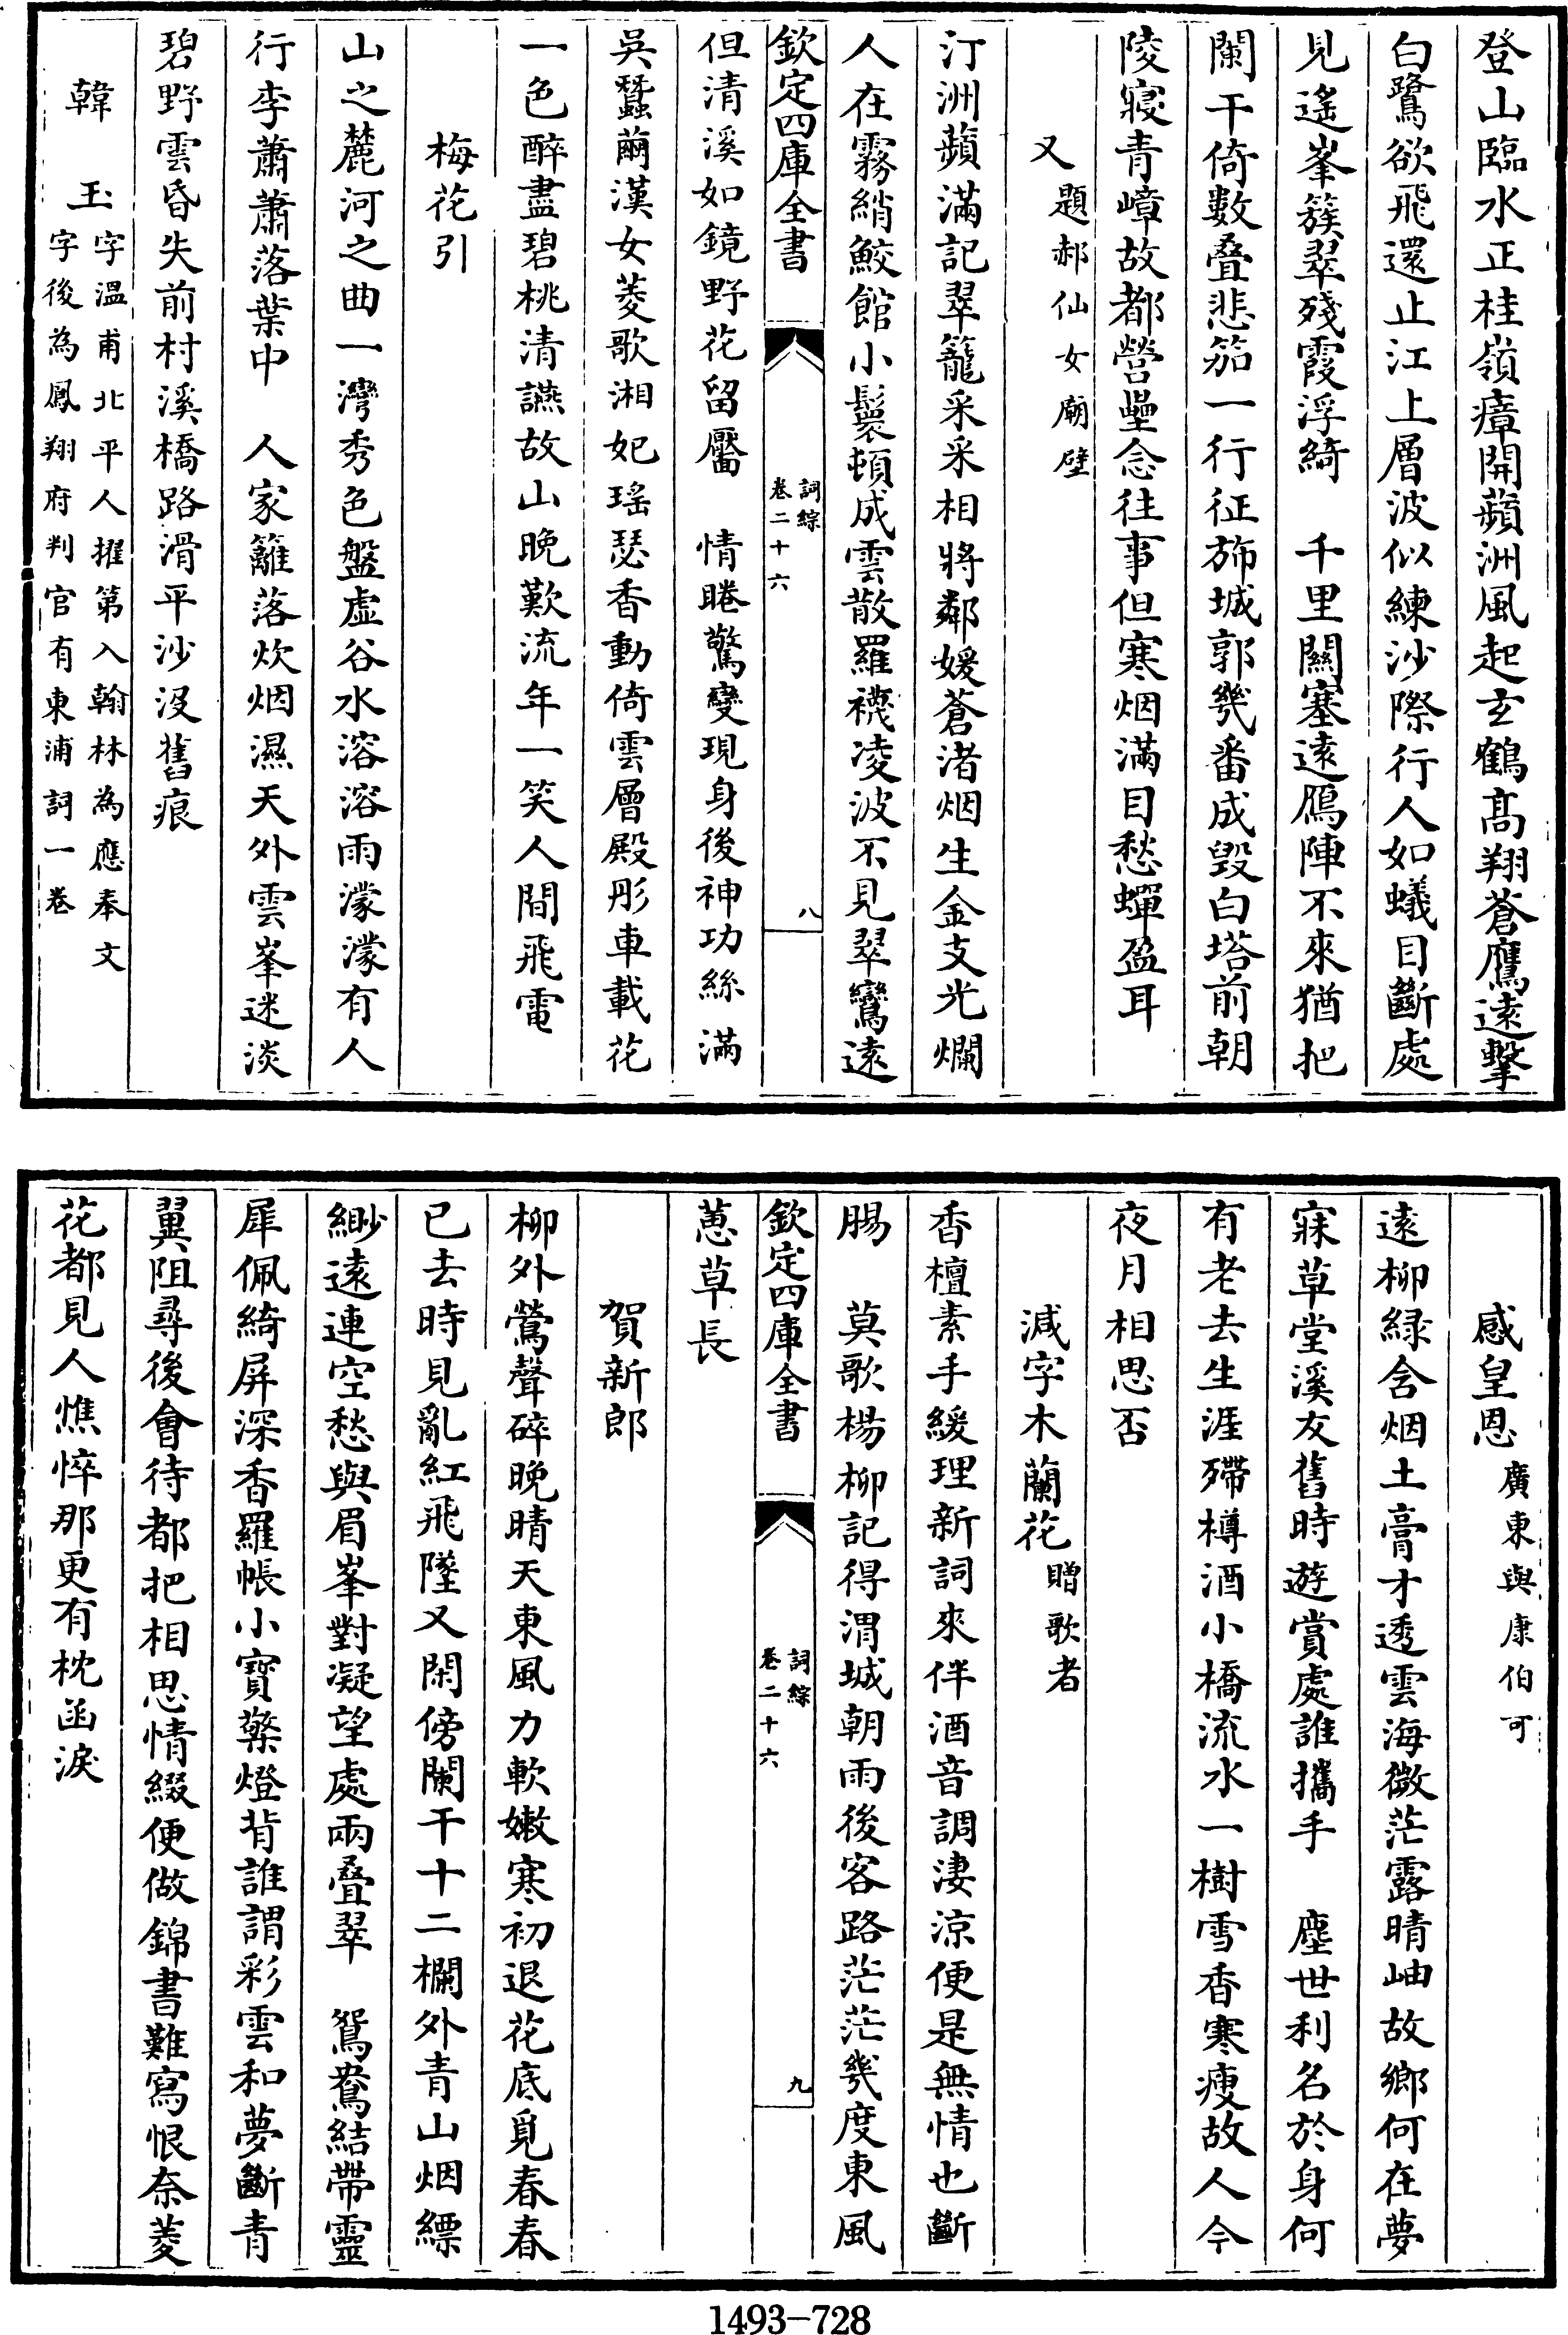 登山臨水正桂嶺瘴開蘋洲風起玄鶴髙翔蒼鷹遠擊
白鷺欲飛還止江上層波似練沙際行人如蟻目斷處
見遙峯簇翠殘霞浮綺　千里關塞遠鴈陣不來猶把
闌干倚數疊悲笳一行征斾城郭幾番成毁白塔前朝
陵寢青嶂故都營壘念往事但寒烟滿目愁蟬盈耳
又題郝仙女廟壁
汀洲蘋滿記翠籠采采相將鄰媛蒼渚烟生金支光爛
人在霧綃鮫館小鬟頓成雲散羅襪凌波不見翠鸞遠
欽定四庫全書
詞綜
卷二十六
八
但清溪如鏡野花留靨　情睠驚變現身後神功絲滿
吳蠶繭漢女菱歌湘妃瑤瑟香動倚雲層殿彤車載花
一色醉盡碧桃清讌故山晚歎流年一笑人間飛電
梅花引
山之麓河之曲一灣秀色盤虚谷水溶溶雨濛濛有人
行李蕭蕭落葉中　人家籬落炊烟濕天外雲峯迷淡
碧野雲昏失前村溪橋路滑平沙沒舊痕
韓玉
字溫甫北平人擢第入翰林為應奉文
字後為鳳翔府判官有東浦詞一卷
感皇恩廣東與康伯可
遠柳緑含烟土膏才透雲海微茫露晴岫故鄉何在夢
寐草堂溪友舊時遊賞處誰攜手　塵世利名於身何
有老去生涯殢樽酒小橋流水一樹雪香寒瘦故人今
夜月相思否
減字木蘭花贈歌者
香檀素手緩理新詞來伴酒音調淒涼便是無情也斷
腸　莫歌楊柳記得渭城朝雨後客路茫茫幾度東風
欽定四庫全書
詞綜
卷二十六
九
蕙草長
賀新郎
柳外鶯聲碎晚晴天東風力軟嫩寒初退花底覓春春
已去時見亂紅飛墜又閑傍闌干十二欄外青山烟縹
緲遠連空愁與眉峯對凝望處兩疊翠　鴛鴦結帶靈
犀佩綺屏深香羅帳小寶檠燈背誰謂彩雲和夢斷青
翼阻尋後會待都把相思情綴便做錦書難寫恨奈菱
花都見人憔悴那更有枕函淚
1493-728